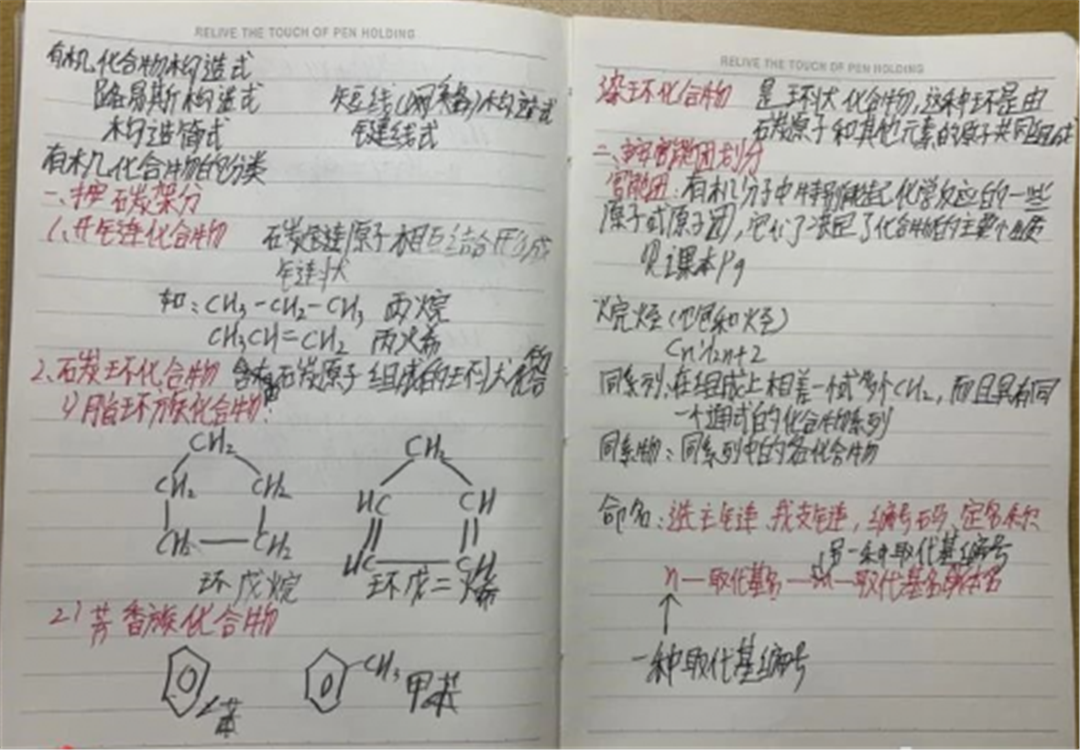 RELIVE THE TOUCH OF PEN HOLDING
有机化合物构造式
路易斯构造式 短线(网络)构造式
构造简式 键线式
有机化合物的分类
一、按碳架分
1、开链化合物 碳链原子相互结合形成
链状
如:CH3-CH2-CH3 丙烷
CH3CH=CH2 丙烯
2、碳环化合物 含有碳原子组成的环状化合物
1)脂环族化合物:
CH2
CH2 CH2
CH2—CH2
环戊烷
CH2
HC CH
HC CH
环戊二烯
2)芳香族化合物
苯
CH3 甲苯
RELIVE THE TOUCH OF PEN HOLDING
环化合物 是环状化合物,这种环是由
碳原子和其他元素的原子共同组成
二、按官能团划分
官能团:有机分子中特别能起化学反应的一些
原子或原子团,它们决定了化合物的主要性质
见课本P9
烷烃(饱和烃)
CnH2n+2
同系列:在组成上相差一个或多个CH2,而且具有同
一个通式的化合物系列
同系物:同系列中的各化合物
命名:选主链、找支链,编号码、定名称
另一种取代基编号
n—取代基名—m—取代基名母体名
一种取代基编号